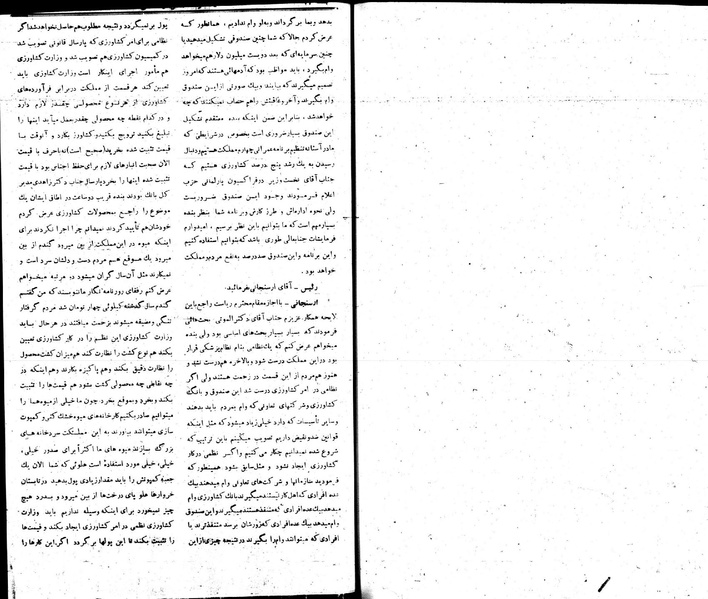 بدهد وبما برگرداند وبه او وام ندادیم، همانطور که
عرض کردم حالا که شما چنین صندوقی تشکیل میدهید با
چنین سرمایه‌ای که بعد دویست میلیون دلار هم میخواهد
وام بگیرد، باید مواظب بود که آدمهائی هستند که امروز
تصمیم میگیرند که بیایند وبیک صورتی از این صندوق
وام بگیرند وآخر وعاقبتش راهم حساب نمیکنند که چه
خواهد شد، بنابر این ضمن اینکه بنده معتقدم تشکیل
این صندوق بسیار ضروری است بخصوص در شرایطی که
ما در آستانه تنظیم برنامه عمرانی چهارم مملکت هستیم و دنبال
رسیدن به یک رشد پنج درصد کشاورزی هستیم که
جناب آقای نخست وزیر در فراکسیون پارلمانی حزب
اعلام فرمودند وجود این صندوق ضروریست
ولی نحوه اداره‌اش و طرز کارش وبرنامه شما بنظر بنده
بسیار مهم است که ما بتوانیم باین نظر برسیم، امیدوارم
فرمایشات جنابعالی طوری باشد که بتوانیم استفاده کنیم
و این برنامه و این صندوق صد در صد به نفع مردم و مملکت
خواهد بود.
رئیس ـ آقای ارسنجانی فرمائید.
ارسنجانی ـ با اجازه مقام محترم ریاست راجع باین
لایحه همکار عزیزم جناب آقای دکتر الموتی بحث‌هائی
فرمودند که بسیار بسیار بحث‌های اساسی بود ولی بنده
میخواهم عرض کنم که یک نظامی بنام نظام پزشکی قرار
بود در این مملکت درست شود وبالاخره هم درست نشد و
هنوز هم مردم از این قسمت در زحمت هستند ولی اگر
نظامی در امر کشاورزی درست شد این صندوق و بانک
کشاورزی وشرکتهای تعاونی که وام بمردم باید بدهند
وسایر تأسیسات که دارد خیلی زیاد میشود که مثل اینکه
قوانین ضد ونقیض داریم تصویب میکنیم باین ترتیب که
شروع شده نمیدانیم چکار می‌کنیم واگر نظمی در کار
کشاورزی ایجاد نشود و مثل سابق بشود همینطور که
فرمودید سازمانها و شرکت‌های تعاونی وام میدهند بیک
عده افرادی که اهل کار نیستند میگیرند بانک کشاورزی وام
میدهد بیک عده افرادی که متنفذ هستند میگیرند و این صندوق
وام میدهد بیک عده افرادی که زورشان برسد متنفذترند یا
افرادی که میتوانند وام را بگیرند در نتیجه چیزی از این
پول برنمیگردد و نتیجه مطلوب هم حاصل نخواهد شد اگر
نظامی برای امر کشاورزی که پارسال قانونی تصویب شد
در کمیسیون کشاورزی هم تصویب شد و وزارت کشاورزی
هم مأمور اجرای اینکار است وزارت کشاورزی باید
تعیین کند هر قسمت از مملکت در برابر فرآورده‌های
کشاورزی از هر نوع محصولی چقدر لازم دارد
و در کدام نقطه چه محصولی چقدر عمل میآید اینها را
تبلیغ بکنید ترویج بکنید و کشاورز بکارد و آنوقت با
قیمت تثبیت شده بخرید (صحیح است) نه با حرف با قیمت
الان صحبت انبارهای لازم برای حفظ اجناس بود با قیمت
تثبیت شده اینها را بخرد پارسال جناب دکتر زاهدی مدیر
کل بانک بودند بنده قریب دو ساعت در اطاق ایشان یک
موضوع را راجع بمحصولات کشاورزی عرض کردم
خودشان هم تأیید کردند نمیدانم چرا اجرا نکردند برای
اینکه میوه در این مملکت از بین میرود گندم از بین
میرود یک موقع هم مردم دست و دلشان سرد است و
نمیکارند مثل آن سال گران میشود دو مرتبه میخواهم
عرض کنم رفقای روزنامه نگار ما ننویسند که من گفتم
گندم سال گذشته کیلوئی چهار تومان شد مردم گرفتار
تنگی و مضیقه میشوند بزحمت میافتند در هرحال باید
وزارت کشاورزی این نظم را در کار کشاورزی تعیین
بکند هم نوع کشت را نظارت کند هم میزان کشت محصول
را نظارت دقیق بکند وهم پاکیزه بکارند وهم اینکه در
چه نقاطی چه محصولی کشت بشود هم قیمت‌ها را تثبیت
بکند وبخرد وبموقع بخرد چون ما خیلی از میوه‌هما را
میتوانیم صادر بکنیم کارخانه‌های میوه خشک کنی و کمپوت
سازی میتوانند بیاورند به این مملکت سردخانه‌های
بزرگ سازند میوه های ما اکثراً برای صدور خیلی،
خیلی، خیلی مورد استفاده است هلوئی که شما الان یک
جعبه کمپوتش را باید مقدار زیادی پول بدهید در تابستان
خروارها هلو پای درخت‌ها از بین میرود و بدرد هیچ
چیز نمیخورد برای اینکه وسیله نداریم باید وزارت
کشاورزی نظمی در امر کشاورزی ایجاد بکند و قیمت‌ها
را تثبیت بکند تا این پولها برگردد اگر این کارها را